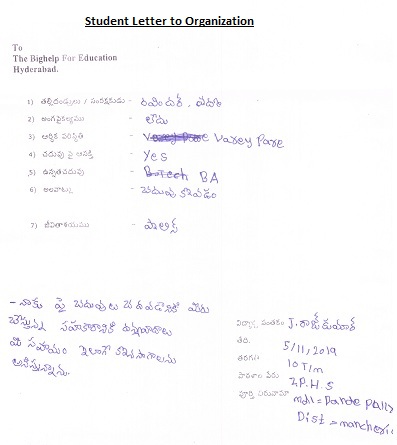 Student Letter to Organization
To
The Bighelp For Education
Hyderabad.
1) తల్లిదండ్రులు / సంరక్షకుడు - రవిందర్,
2) అంగవైకల్యము - లేదు
3) ఆర్థిక పరిస్థితి - Varey Pare
4) చదువు పై ఆసక్తి - Yes
5) ఉన్నతచదువు - BA
6) అలవాట్లు - చదువు కొవడం
7) జీవితాశయము - పొలిస్
- నాకు పై చదువులు చదవడానికి మీరు
చేస్తున్న సహకారానికి ధన్యవాదాలు
మి సహాయం ఇలాగే కొనసాగాలను
ఆశిస్తున్నాను.
విద్యార్థి సంతకం J. రాజ్ కుమార్
తేది. 5/11/2019
తరగతి 10 T/m
పాఠశాల పేరు Z.P.H.S
పూర్తి చిరునామా mdl = Dande Pally
Dist =